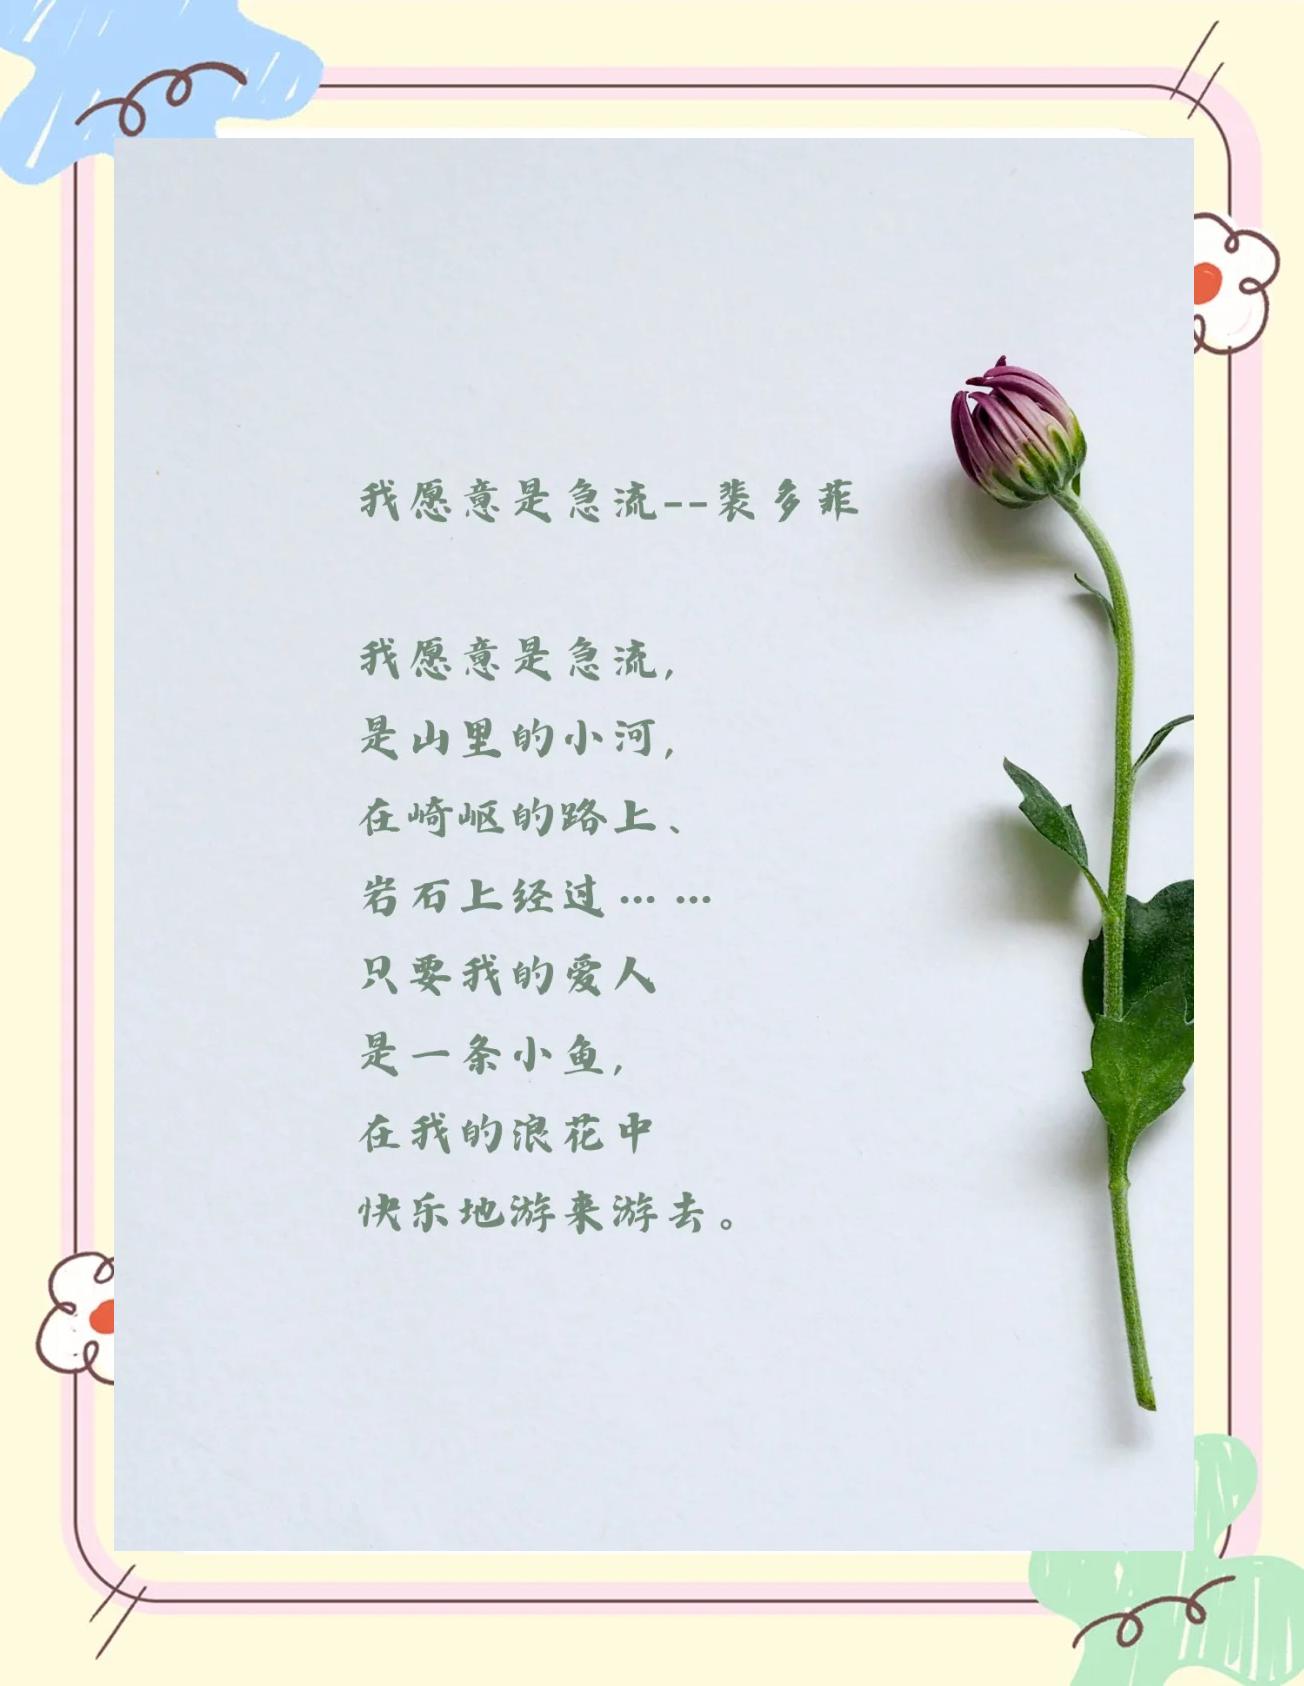 我愿意是急流--裴多菲
我愿意是急流,
是山里的小河,
在崎岖的路上、
岩石上经过……
只要我的爱人
是一条小鱼,
在我的浪花中
快乐地游来游去。